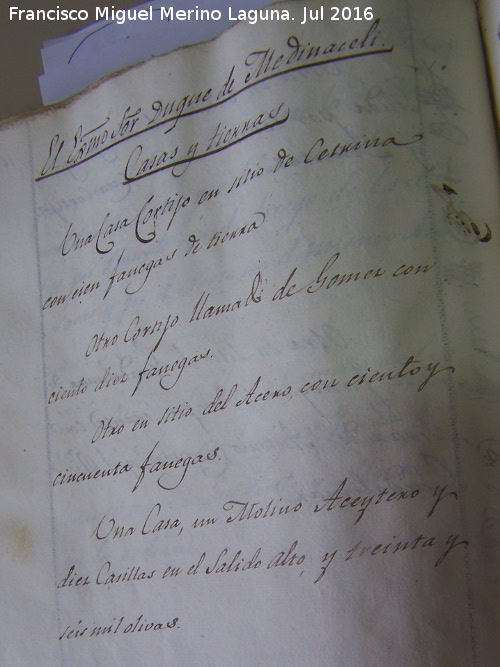 Francisco Miguel Merino Laguna. Jul 2016
El Exmo Sor Duque de Medinaceli.
Casas y tierras
Una Casa Cortijo en sitio de Cetrina
con cien fanegas de tierra
Otro Cortijo llamado de Gomez con
ciento diez fanegas.
Otro en sitio del Acero, con ciento y
cincuenta fanegas.
Una Casa, un Molino Aceytero y
diez Casillas en el Salido alto, y treinta y
séis mil olivas.